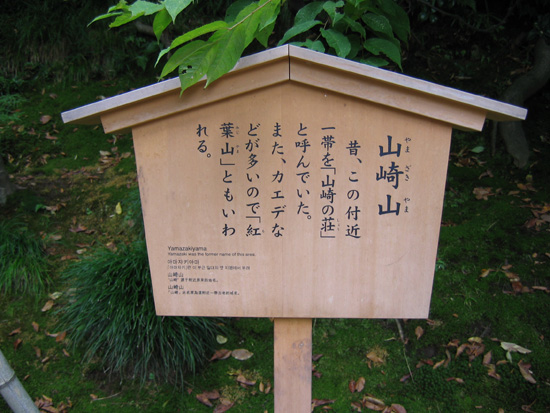 山崎山
やま ざき やま
昔、この付近
一帯を「山崎の荘」
と呼んでいた。
また、カエデな
どが多いので「紅
葉山」ともいわ
れる。
Yamazakiyama
Yamazaki was the former name of this area.
야마자키야마
山崎山
山崎山